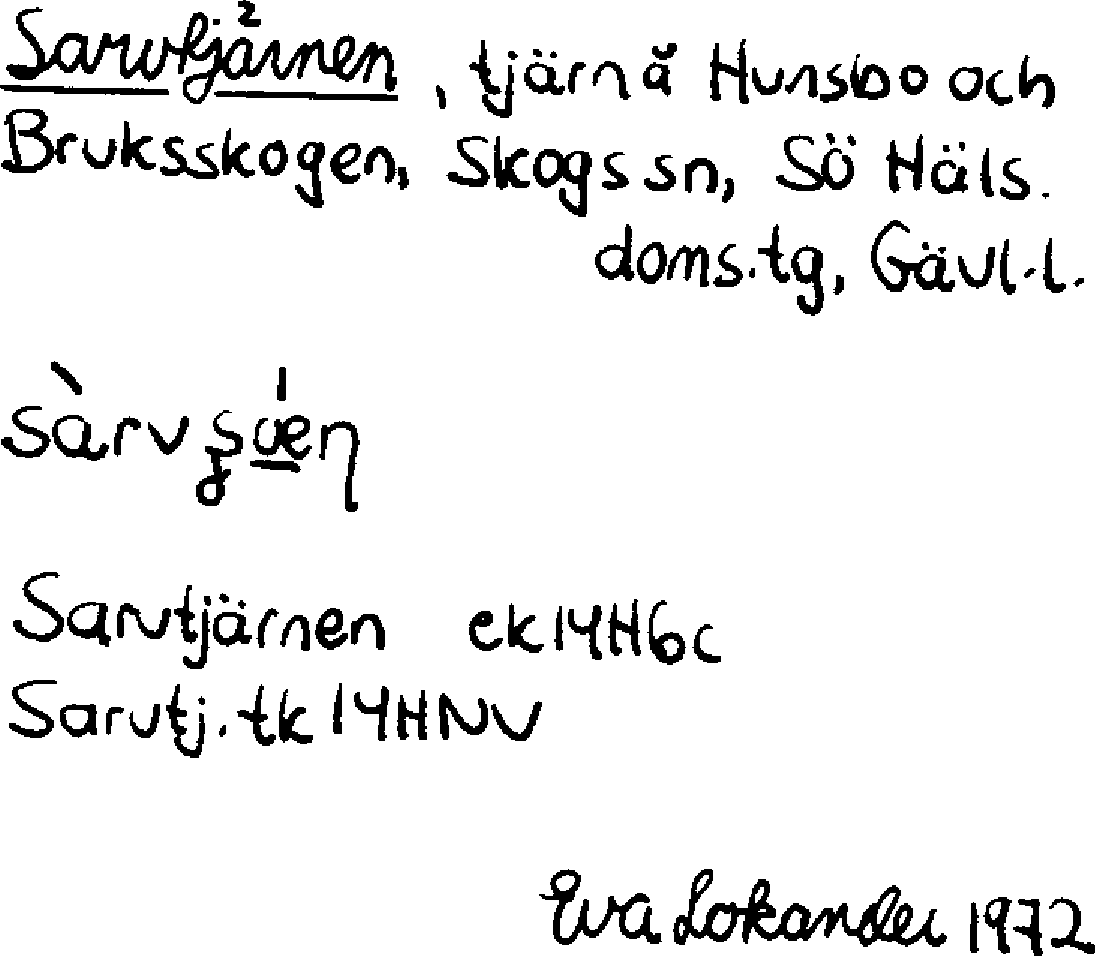 Sarvtjärnen, tjärn å Hunsbo och
Bruksskogen, Skogs sn, Sö Häls.
doms.tg, Gävl.l.
Sarvtjärnen ek 14H6c
Sarvtj. tk 14HNV
Eva Lokander 1972